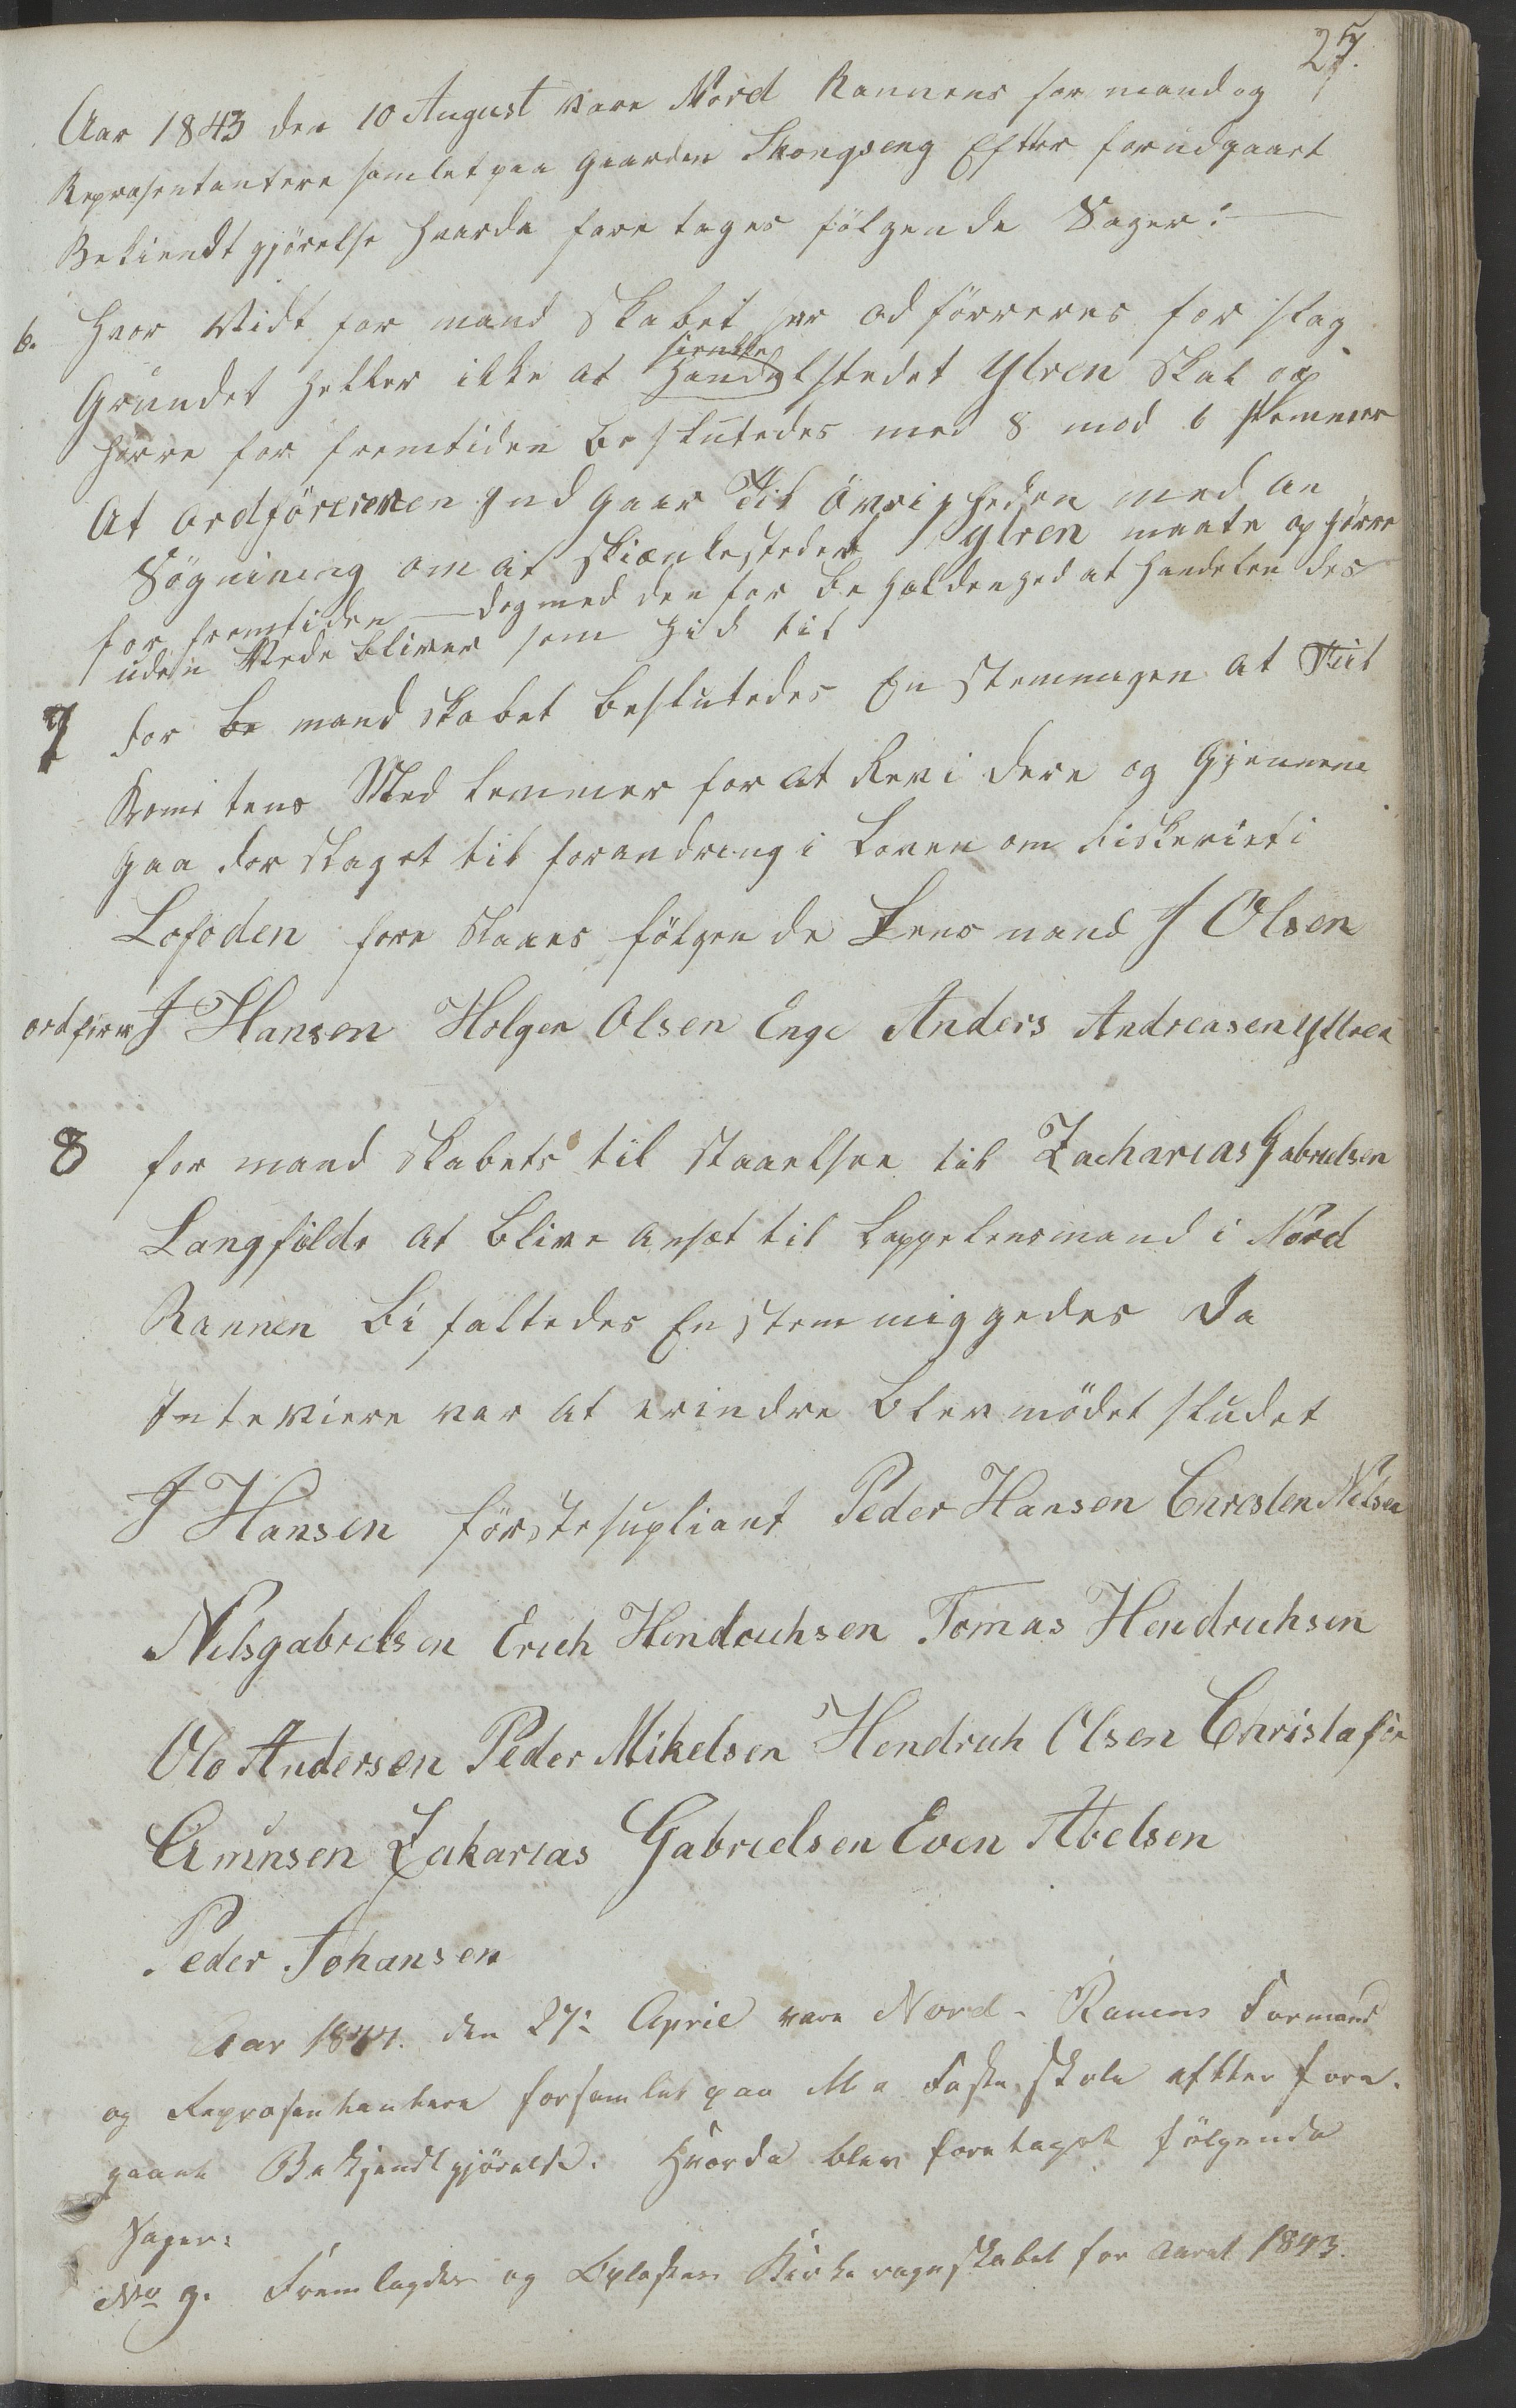 27.
Aar 1843 den 10 August vare Nord Rannens for mand og
Repræsentantere samlet paa Gaarden Skongseng Efter forudgaaet
Bekiendtgjörelse hvorda fore tages fölgende Sager:
6. Hvor Vidt for mand skabet er ordförreres for slag
Grundet heller ikke at Handelstedet Ytren skal op
sienke
hörre for fremtiden besluttedes med 8 mod 6 stemmer
At ordförereren Indgaar Til övrigheden med an
Sögnining om at skiænkestedet Ytren maate ophörre
for fremtiden dog med den for beholdenhed at Handelen des
uden Vede bliver som hid til
7 For be mand skabet besluttedes En stemmigen at Til
Komitens Med lemmer for at Revidere og Gjennem
gaa for slaget til forandring i Loven om Fiskeriet i
Lofoden fore slaaes fölgende Lensmand J Olsen
ordförer J Hansen Holger Olsen Enge Anders Andreasen Yttren
8 for mand skabets til staaelsee til Zacharias Gabrielsen
Langfilde at blive ansæt til Lappelensmand i Nord
Rannen bifaltedes En stemmiggedes Da
Inteviere var at erindre blev mödet sludet
J Hansen förstesupliant Peder Hansen Christen Nilsen
Nilsgabrielsen Erich Hendrichsen Tomas Hendrichsen
Ole Andersen Peder Mikelsen Hendrich Olsen Christafer
Amunsen Zakarias Gabrielsen Even Abelsen
Peder Johansen
Aar 1844. den 27de April vare Nord-Ranens Formænd
og Repræsentantere forsamlet paa Mo Faste skole eftter fore-
gaaet Bekjendtgjörelse. Hvorda blev foretaget fölgende
Sager:
No 9. Fremlagdes og Oplæstes Kirke regnskabet for Aaret 1843.